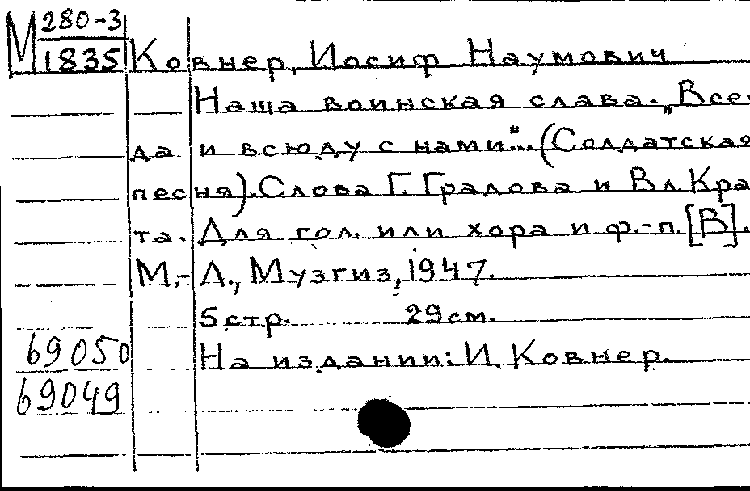 М 280-3
1835 Ковнер, Иосиф Наумович
Наша воинская слава. „Все-
да и всюду с нами"... (Солдатская
песня). Слова Г. Градова и Вл. Кра
та. Для гол. или хора и ф.-п. [В].
М.-Л., Музгиз, 1947.
5 стр. 29 см.
69050 На издании: И. Ковнер.
69049